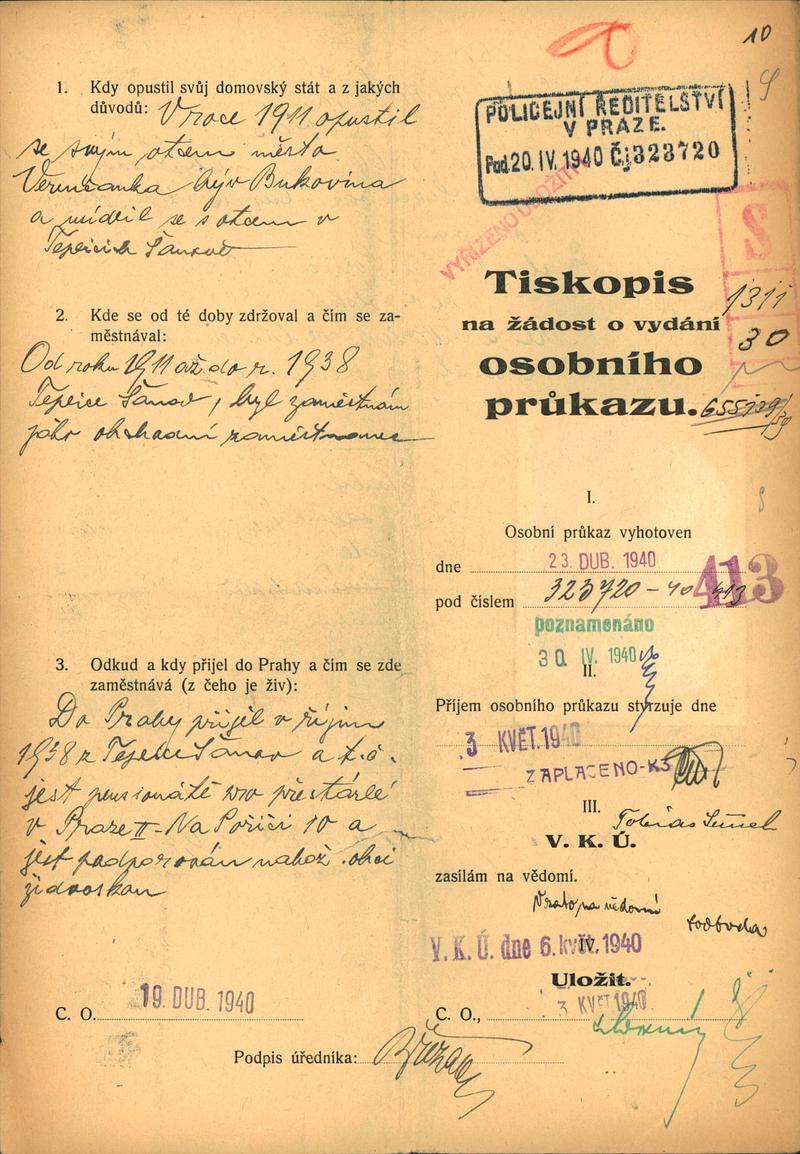 10
1. Kdy opustil svůj domovský stát a z jakých
důvodů: V roce 1911 opustil
se svým otcem město
býv Bukovina
a usídlil se s otcem v
Šanově
2. Kde se od té doby zdržoval a čím se za-
městnával:
Od roku 1911 až do r. 1938
Teplice Šanov, byl zaměstnám
jako obchodní
3. Odkud a kdy přijel do Prahy a čím se zde
zaměstnává (z čeho je živ):
Do Prahy přijel v říjnu
1938 z Teplice Šanov a t. č.
jest pensionátě pro přestárlé
v Praze II- Na Poříčí 10 a
jest podporován nábož. obcí
židovskou
C. O. 19. DUB. 1940
Podpis úředníka:
POLICEJNÍ ŘEDITELSTVÍ
V PRAZE.
Pod. 20. IV. 1940 Čj 323720
VYŘÍZENO ULOŽIT
S
1311
30
Tiskopis
na žádost o vydání
osobního
průkazu.
I.
Osobní průkaz vyhotoven
dne 23. DUB. 1940
pod číslem 323720-40 413
413
poznamenáno
30. IV. 1940
II.
Příjem osobního průkazu stvrzuje dne
3 KVĚT. 1940
ZAPLACENO-K3
III.
Tobias
V. K. Ú.
zasílám na vědomí.
Vzato na vědomí
V. K. Ú. dne 6. květ. 1940
IV.
Uložit.
C. O., 3 KVĚT 1940